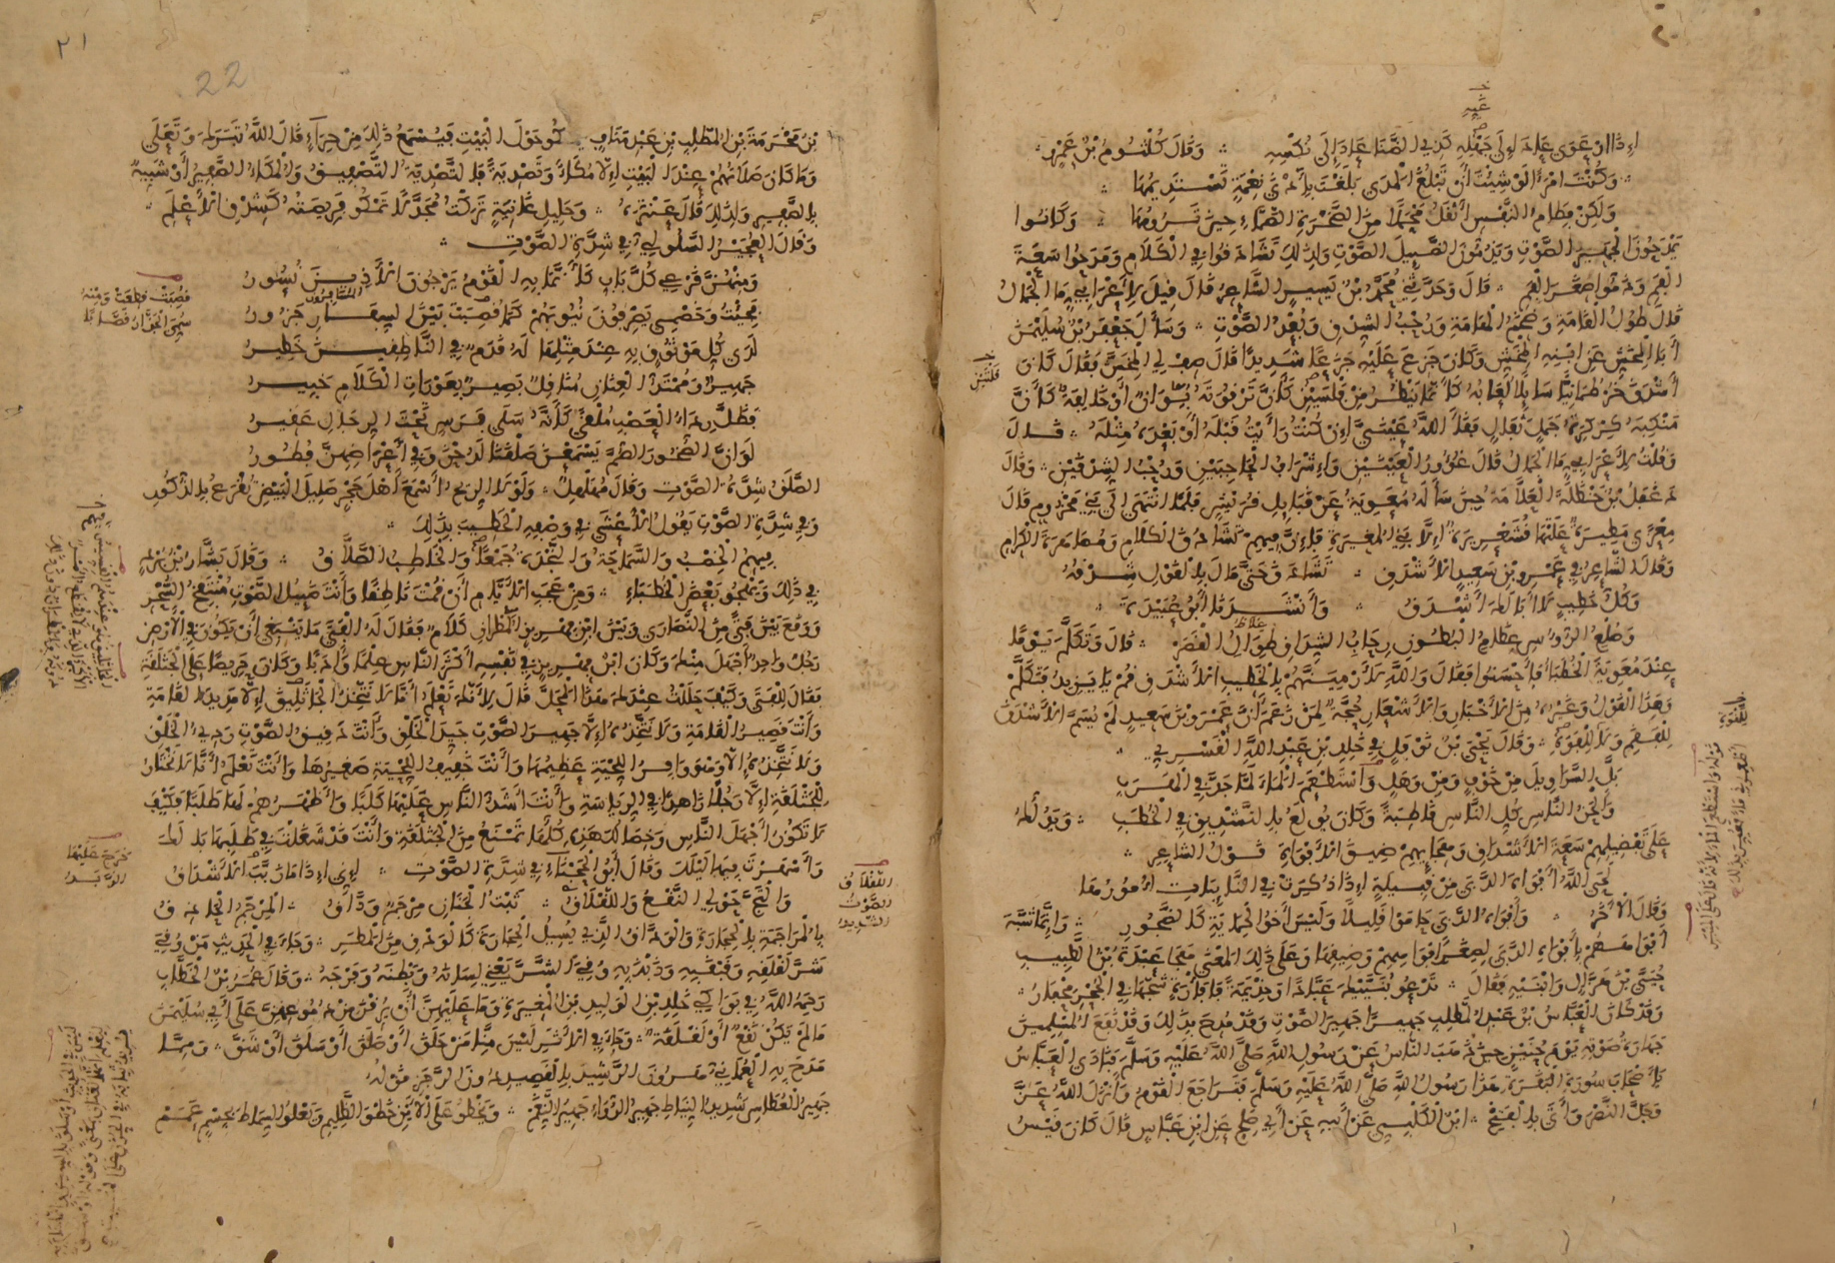 إذا ارعوى عاد إلى جهله كذي الضنا عاد إلى نكسه وقال كلثوم بن عمرو
وكنت امرأ لو شئت أن تبلغ المدى بلغت بأدنى نعمة تستديمها
ولكن فطام النفس أثقل محملا من الصخرة الصماء حين ترومها وكانوا
يمدحون الجهير الصوت ويذمون الضييل الصوت ولذلك تشادقوا في الكلام ومدحوا سعة
الفم وذموا صغر الفم قال وحدثني محمد بن يسير الشاعر قال قيل لأعرابي ما الجمال
قال طول القامة وضخم الهامة ورحب الشدق وبعد الصوت وسأل جعفر بن سليمن
أبا المخش عن ابنه المخش وكان جزع عليه جزعا شديدا قال صف لي المخش فقال كان
أشدق خرطمانيا سايلا لعابه كأنما ينظر من قلتين كأن ترقوته بوان أو خالفة كأن
منكبه كركرة جمل ثفال فقأ الله عيني إن كنت رأيت قبله أو بعده مثله قال
وقلت لأعرابي ما الجمال قال غؤور العينين وإشراف الحاجبين ورحب الشدقين وقال
دغفل بن حنظلة العلامة حين سأله معوية عن قبايل قريش فلما انتهى إلى بني مخزوم قال
معزى مطيرة علتها قشعريرة إلا بني المغيرة فإن فيهم تشادق الكلام ومصاهرة الكرام
وقال الشاعر في عمرو بن سعيد الأشدق تشادق حتى مال بالقول شدقه
وكل خطيب لا أبا لك أشدق وأنشد أبو عبيدة
وصلع الرؤوس عظام البطون رحاب الشداق طوال القصر قال وتكلم يوما
عند معوية الخطباء فأحسنوا فقال والله لأرمينهم بالخطيب الأشدق قم يا يزيد فتكلم
وهذا القول وغيره من الأخبار والأشعار حجة لمن زعم أن عمرو بن سعيد لم يسم الأشدق
للفقم ولا للقوة وقال يحيى بن نوفل في خلد بن عبد الله القسري
بل السراويل من خوف ومن وهل واستطعم الماء لما جد في الهرب
وألحن الناس كل الناس قاطبة وكان يولع بالتشديق في الخطب ويدلك
على تفضيلهم سعة الأشداق وهجايهم ضيق الأفواه قول الشاعر
لحى الله أفواه الدبى من قبيلة إذا ذكرت في النايبات أمورها
وقال الآخر وأفواه الدبى حاموا قليلا وليس أخو الحماية كالضجور وإنما شبه
أفواههم بأفواه الدبى لصغر أفواههم وضيقها وعلى ذلك المعنى هجا عبدة بن الطبيب
حيي بن هزال وابنيه فقال تدعو بنييك عبادا وجذيمة فا فأرة شجها في الجحر محفار
وقد كان العباس بن عبد المطلب جهيرا جهير الصوت وقد مدح بذلك وقد نفع المسلمين
جهارة صوته يوم حنين حين ذهب الناس عن رسول الله صلى الله عليه وسلم فنادى العباس
يا أصحاب سورة البقرة هذا رسول الله صلى الله عليه وسلم فتراجع القوم وأنزل الله عز
وجل النصر وأتى بالفتح ابن الكلبي عن أبيه عن أبي صلح عن ابن عباس قال كان قيس
بن مخرمة بن المطلب بن عبد مناف يمكو حول البيت فيسمع ذلك من حراء قال الله تبارك وتعلى
وما كان صلاتهم عند البيت إلا مكاء وتصدية فالتصدية التصفيق والمكاء الصفير أو شبيه
بالصفير ولذلك قال عنترة وحليل غانية تركت مجدلا تمكو فريصته كشدق الأعلم
وقال العجير السلولي في شدة الصوت
ومنهن قرعي كل باب كأنما به القوم يرجون الأذين نسور
فجئت وخصمي يصرفون نيوبهم كما قصبت بين الشفار جزور
لدى كل موثوق به عند مثلها له قدم في الناطقين خطير
جهير وممتد العنان مناقل بصير بعورات الكلام خبير
فظل رداء العصب ملقى كأنه سلى فرس تحت الرجال عقير
لو ان الصخور الصم يسمعن صلقنا لرحن وفي أعراضهن فطور
الصلق شدة الصوت وقال مهلهل ولولا الريح أسمع أهل حجر صليل البيض تقرع بالذكور
وفي شدة الصوت يقول الأعشى في وصفه الخطيب بذلك
فيهم الخصب والسماحة والنجدة جمعا والخاطب الصلاق وقال بشار بن برد
في ذلك ويهجو بعض الخطباء ومن عجب الأيام أن قمت ناطقا وأنت ضييل الصوت منتفخ السحر
ووقع بين فتى من النصارى وبين ابن فهريز المطران كلام فقال له الفتى ما ينبغي أن يكون في الأرض
رجل واحد أجهل منك وكان ابن فهريز في نفسه أكثر الناس علما وأدبا وكان حريصا على الجثلقة
فقال للفتى وكيف حللت عندك هذا المحل قال لأنك تعلم أنا لا نتخذ الجاثليق إلا مديد القامة
وأنت قصير القامة ولا نتخذه إلا جهير الصوت جيد الحلق وأنت دقيق الصوت ردي الحلق
ولا نتخذه إلا وهو وافر اللحية عظيمها وأنت خفيف اللحية صغيرها وأنت تعلم أنا لا نختار
للجثلقة إلا رجلا زاهدا في الرياسة وأنت أشد الناس عليها كلبا وأظهرهم لها طلبا فكيف
لا تكون أجهل الناس وخصالك هذه كلها تمنع من الجثلقة وأنت قد شغلت في طلبها بالك
وأسهرت فيها ليلك وقال أبو الحجناء في شدة الصوت إني إذا ما زبب الأشداق
والتج حولي النقع واللقلاق ثبت الجنان مرجم وداق المرجم الحاذق
بالمراجمة بالحجارة والوداق الذي يسيل الحجارة كالودق من المطر وجاء في الحديث من وقي
شر لقلقه وقبقبه وذبذبه وقي الشر يعني لسانه وبطنه وفرجه وقال عمر بن الخطاب
رحمه الله في بواكي خلد بن الوليد بن المغيرة وما عليهن أن يرقن من دموعهن على أبي سليمن
ما لم يكن نقع أو لقلقة وجاء في الأثر ليس منا من حلق أو صلق أو سلق أو شق ومما
مدح به العماني هرون الرشيد بالقصيد دون الرجز قوله
جهير العطاس شديد النياط جهير الرواء جهير النغم ويخطو على الأين خطو الظليم ويعلو السماط بجسم عمم
22
٢١